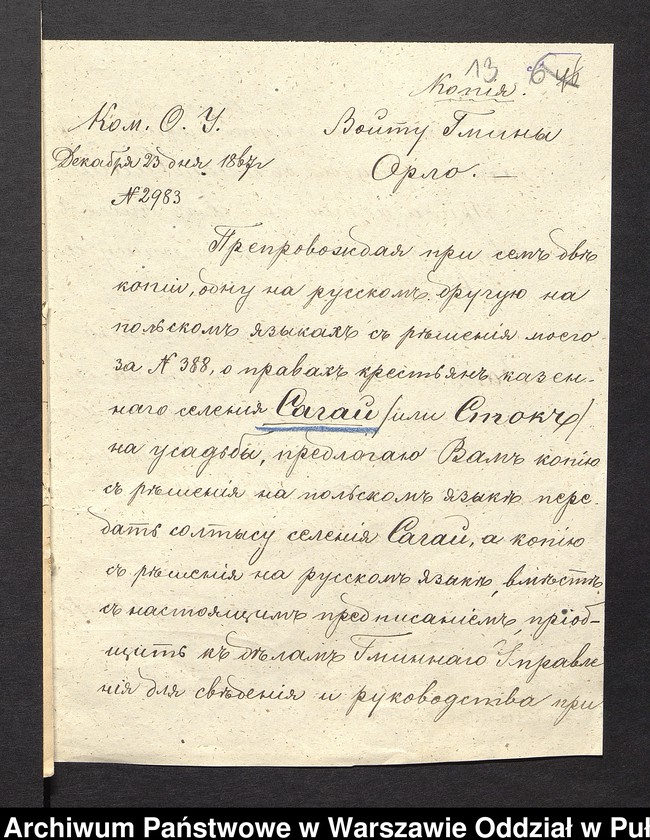 13 6
Копія.
Ком. О. У.
Войту Гмины
Декабря 23 дня 1867г
Орло.
№ 2983
Препровождая при семъ двѣ
копіи, одну на русскомъ другую на
польскомъ языкахъ съ рѣшенія моего
за № 388, о правахъ крестьянъ казен-
наго селенія Сагай /или Стокъ/
на усадьбы, предлогаю Вамъ копію
съ рѣшенія на польскомъ языкѣ пере-
дать солтысу селенія Сагай, а копію
съ рѣшенія на русскомъ языкѣ, вмѣстѣ
съ настоящимъ предписаніемъ, пріоб-
щить къ дѣламъ Гминнаго Управле
нія для свѣденія и руководства при
Archiwum Państwowe w Warszawie Oddział w Puł